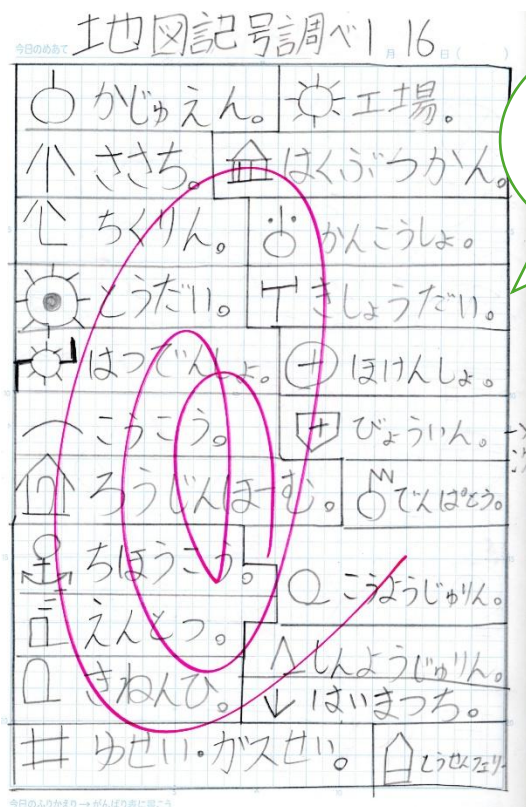 今日のめあて 地図記号調べ 1月16日( )
かじゅえん。 工場。
ささち。 はくぶつかん。
ちくりん。 かんこうしょ。
とうだい。 きしょうだい。
はつでんしょ。 ほけんしょ。
こうこう。 びょういん。
ろうじんほーむ。 でんぱとう。
ちほうこう。 こうようじゅりん。
えんとつ。 しんようじゅりん。
きねんひ。 はいまつち。
ゆせい・ガスせい。 とうせんフェリー
今日のふりかえり→がんばり表に書こう